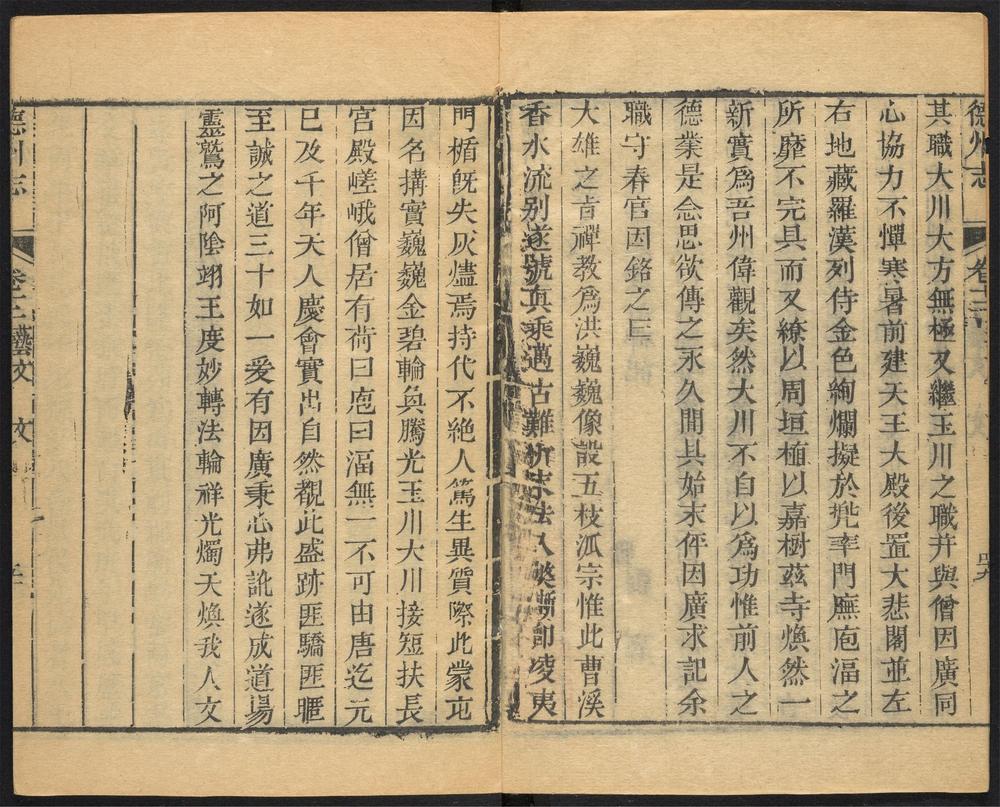 德州志
卷十二
其職大川大方無極又繼玉川之職幷與僧因廣同
心協力不憚寒暑前建天王大殿後置大悲閣並左
右地藏羅漢列侍金色絢爛擬於兠率門廡庖湢之
所靡不完具而又繚以周垣植以嘉樹兹寺煥然一
新實爲吾州偉觀矣然大川不自以爲功惟前人之
德業是念思欲傳之永久間具始末俾因廣求記余
職守春官因銘之曰
大雄之旨禪教爲洪巍巍像設五枝泒宗惟此曹溪
香水流别遂號真乘邁古難 末法 漸卽凌夷
門楯旣失灰燼焉持代不絶人篤生異質際此蒙屯
因名搆實巍巍金碧輪奐騰光玉川大川接短扶長
宮殿嵯峨僧居有荷曰庖曰湢無一不可由唐迄元
已及千年天人慶會實出自然覩此盛跡匪驕匪
至誠之道三十如一爰有因廣秉心弗訛遂成道場
靈鷲之阿陰翊王度妙轉法輪祥光燭天煥我人文
德州志
卷十二藝文 文